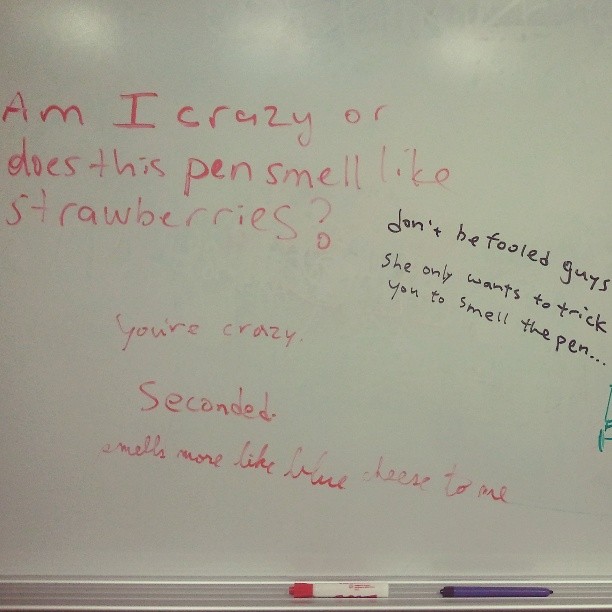 Am I crazy or
does this pen smell like
strawberries?
don't be fooled guys
she only wants to trick
you to smell the pen...
you're crazy.
Seconded.
smells more like blue cheese to me